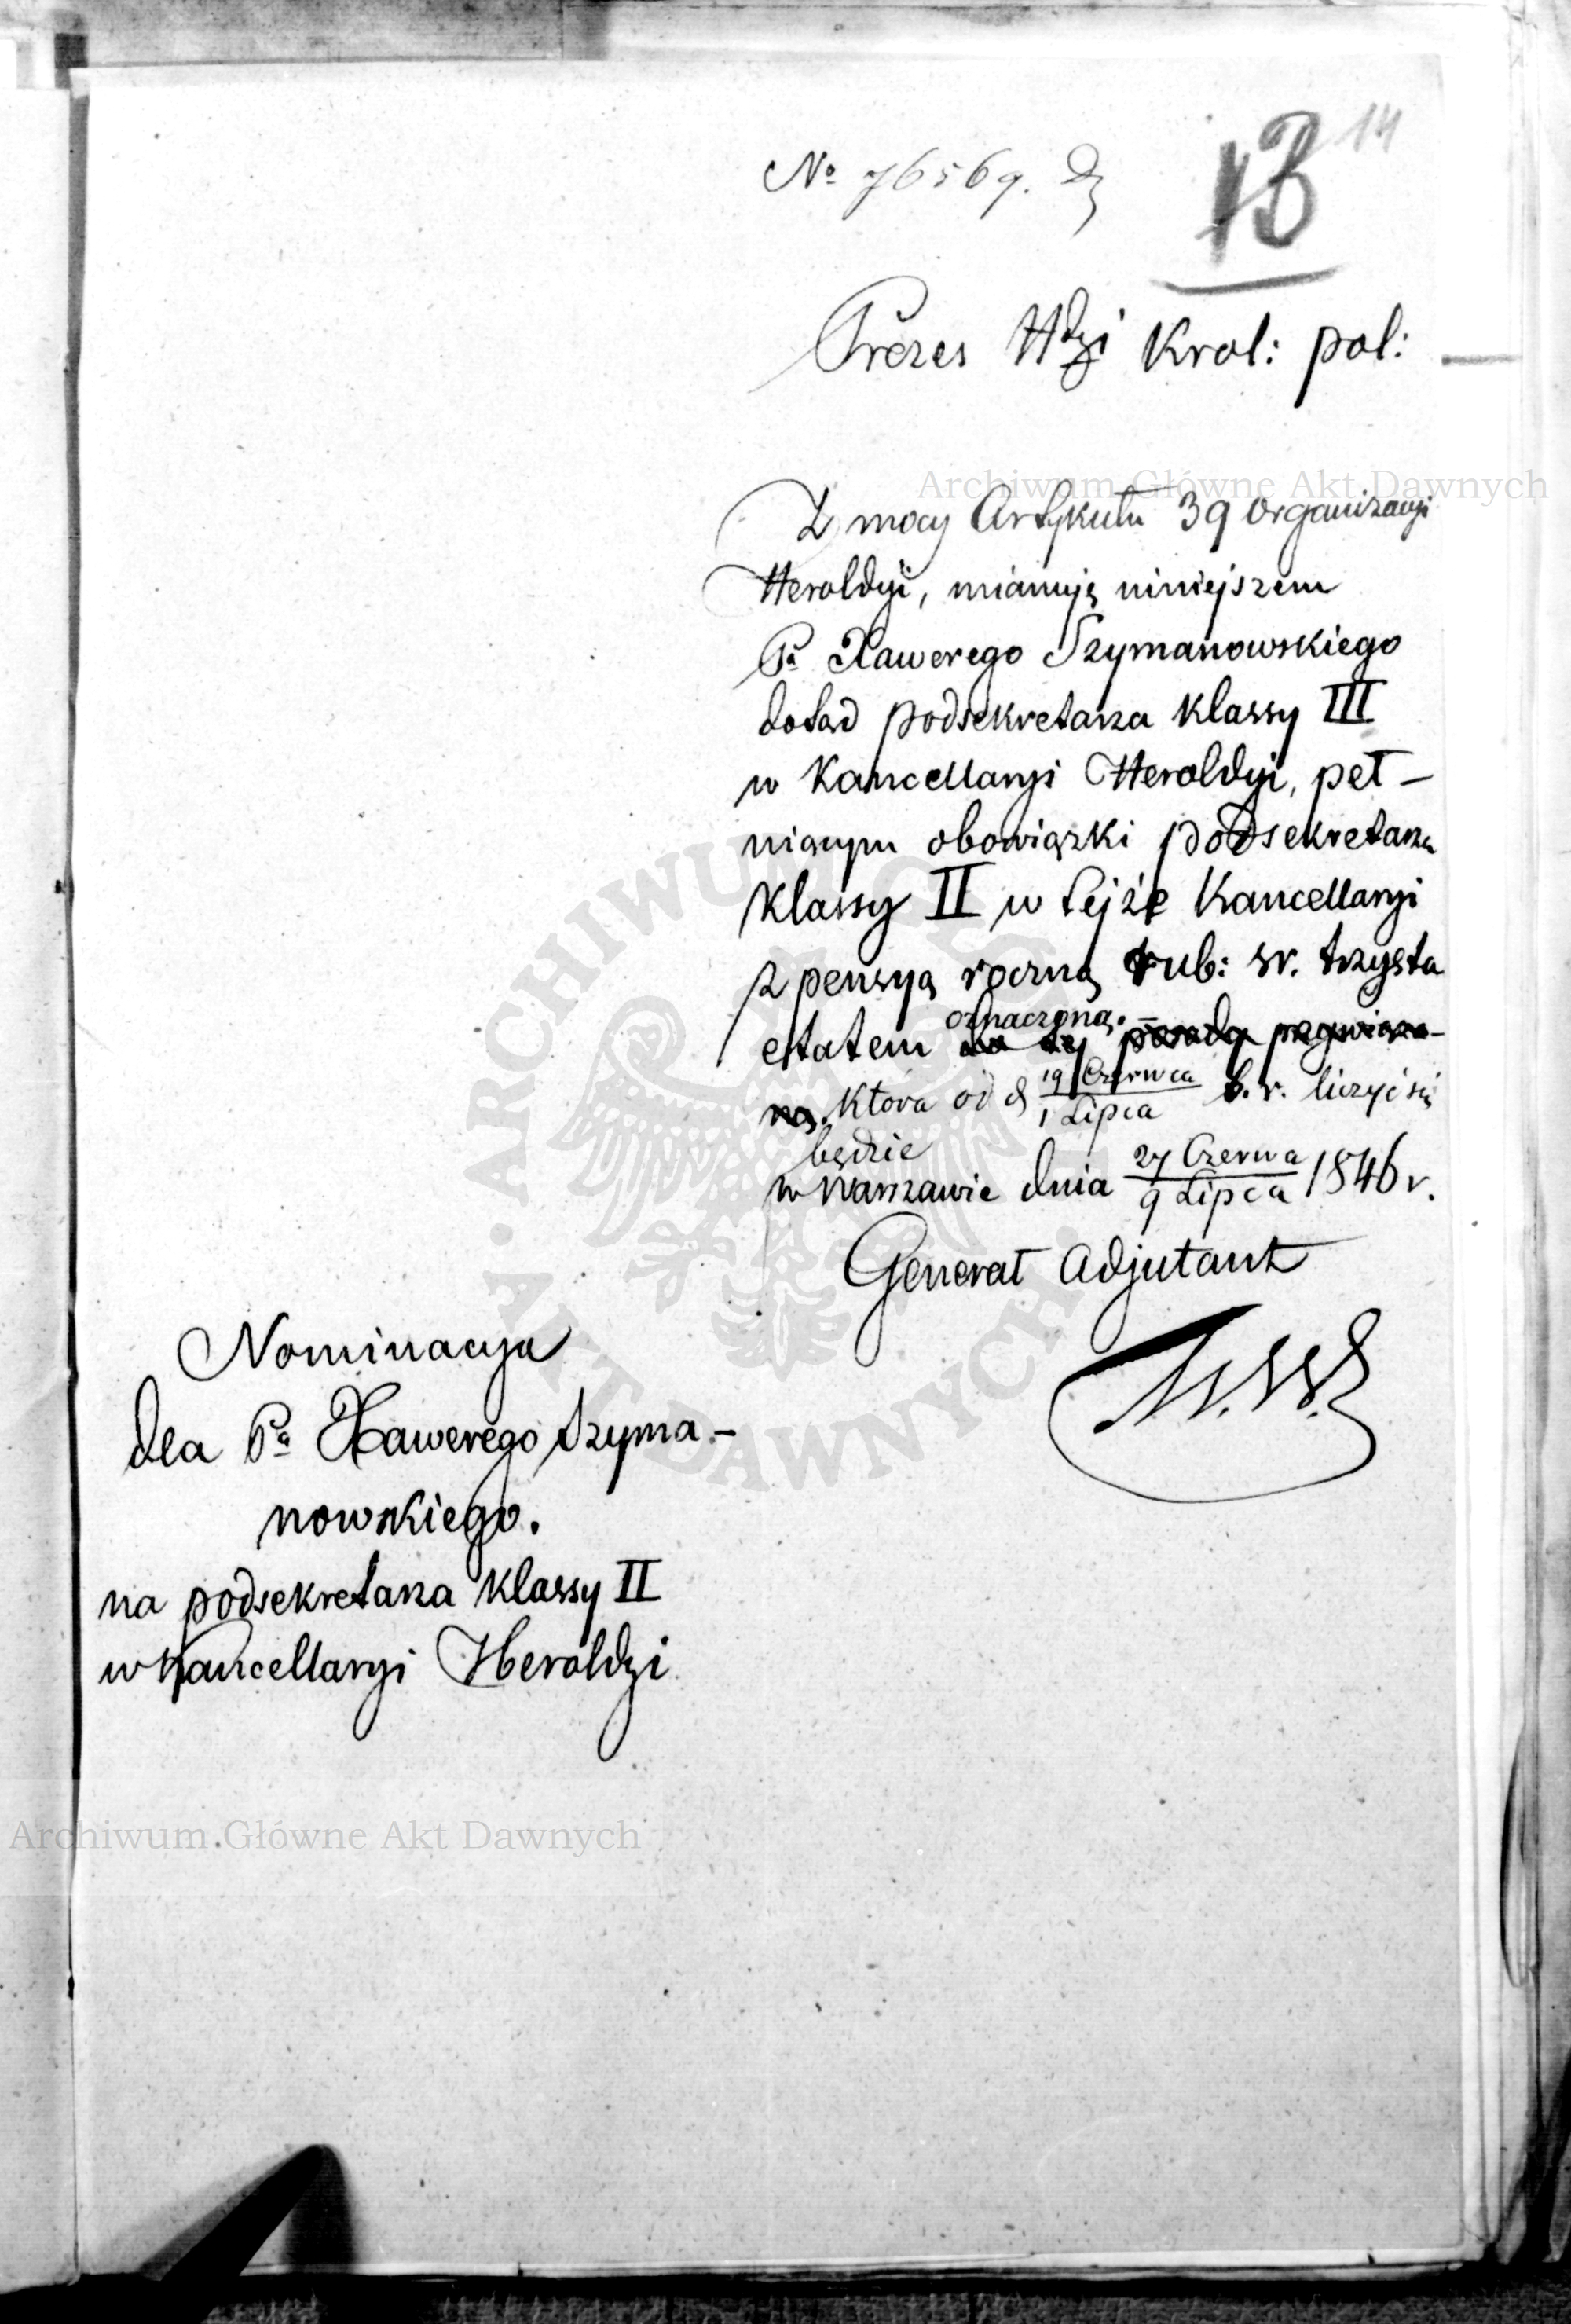 14
13
№ 76569.
Prezes Hdyi Krol: pol:
Z mocy Artykułu 39 Organizacyi
Heroldyi, mianuję niniejszem
Pa Xawerego Szymanowskiego
dotąd podsekretarza klassy III
w Kancellaryi Heroldyi, peł-
niącym obowiązki podsekretarza
klassy II w tejże Kancellaryi
z pensyą roczną rub: sr. trzysta
oznaczoną.
etatem do tej posady przywiąza-
ną. która od d 19 Czerwca / 1 Lipca b. r. liczyć się
będzie
w Warszawie dnia 27 Czerwca / 9 Lipca 1846 r.
Generał Adjutant
Nominacya
dla Pa Xawerego Szyma-
nowskiego.
na podsekretarza klassy II
w Kancellaryi Heroldyi
Archiwum Główne Akt Dawnych
ARCHIWUM GŁÓWNE AKT DAWNYCH
Archiwum Główne Akt Dawnych